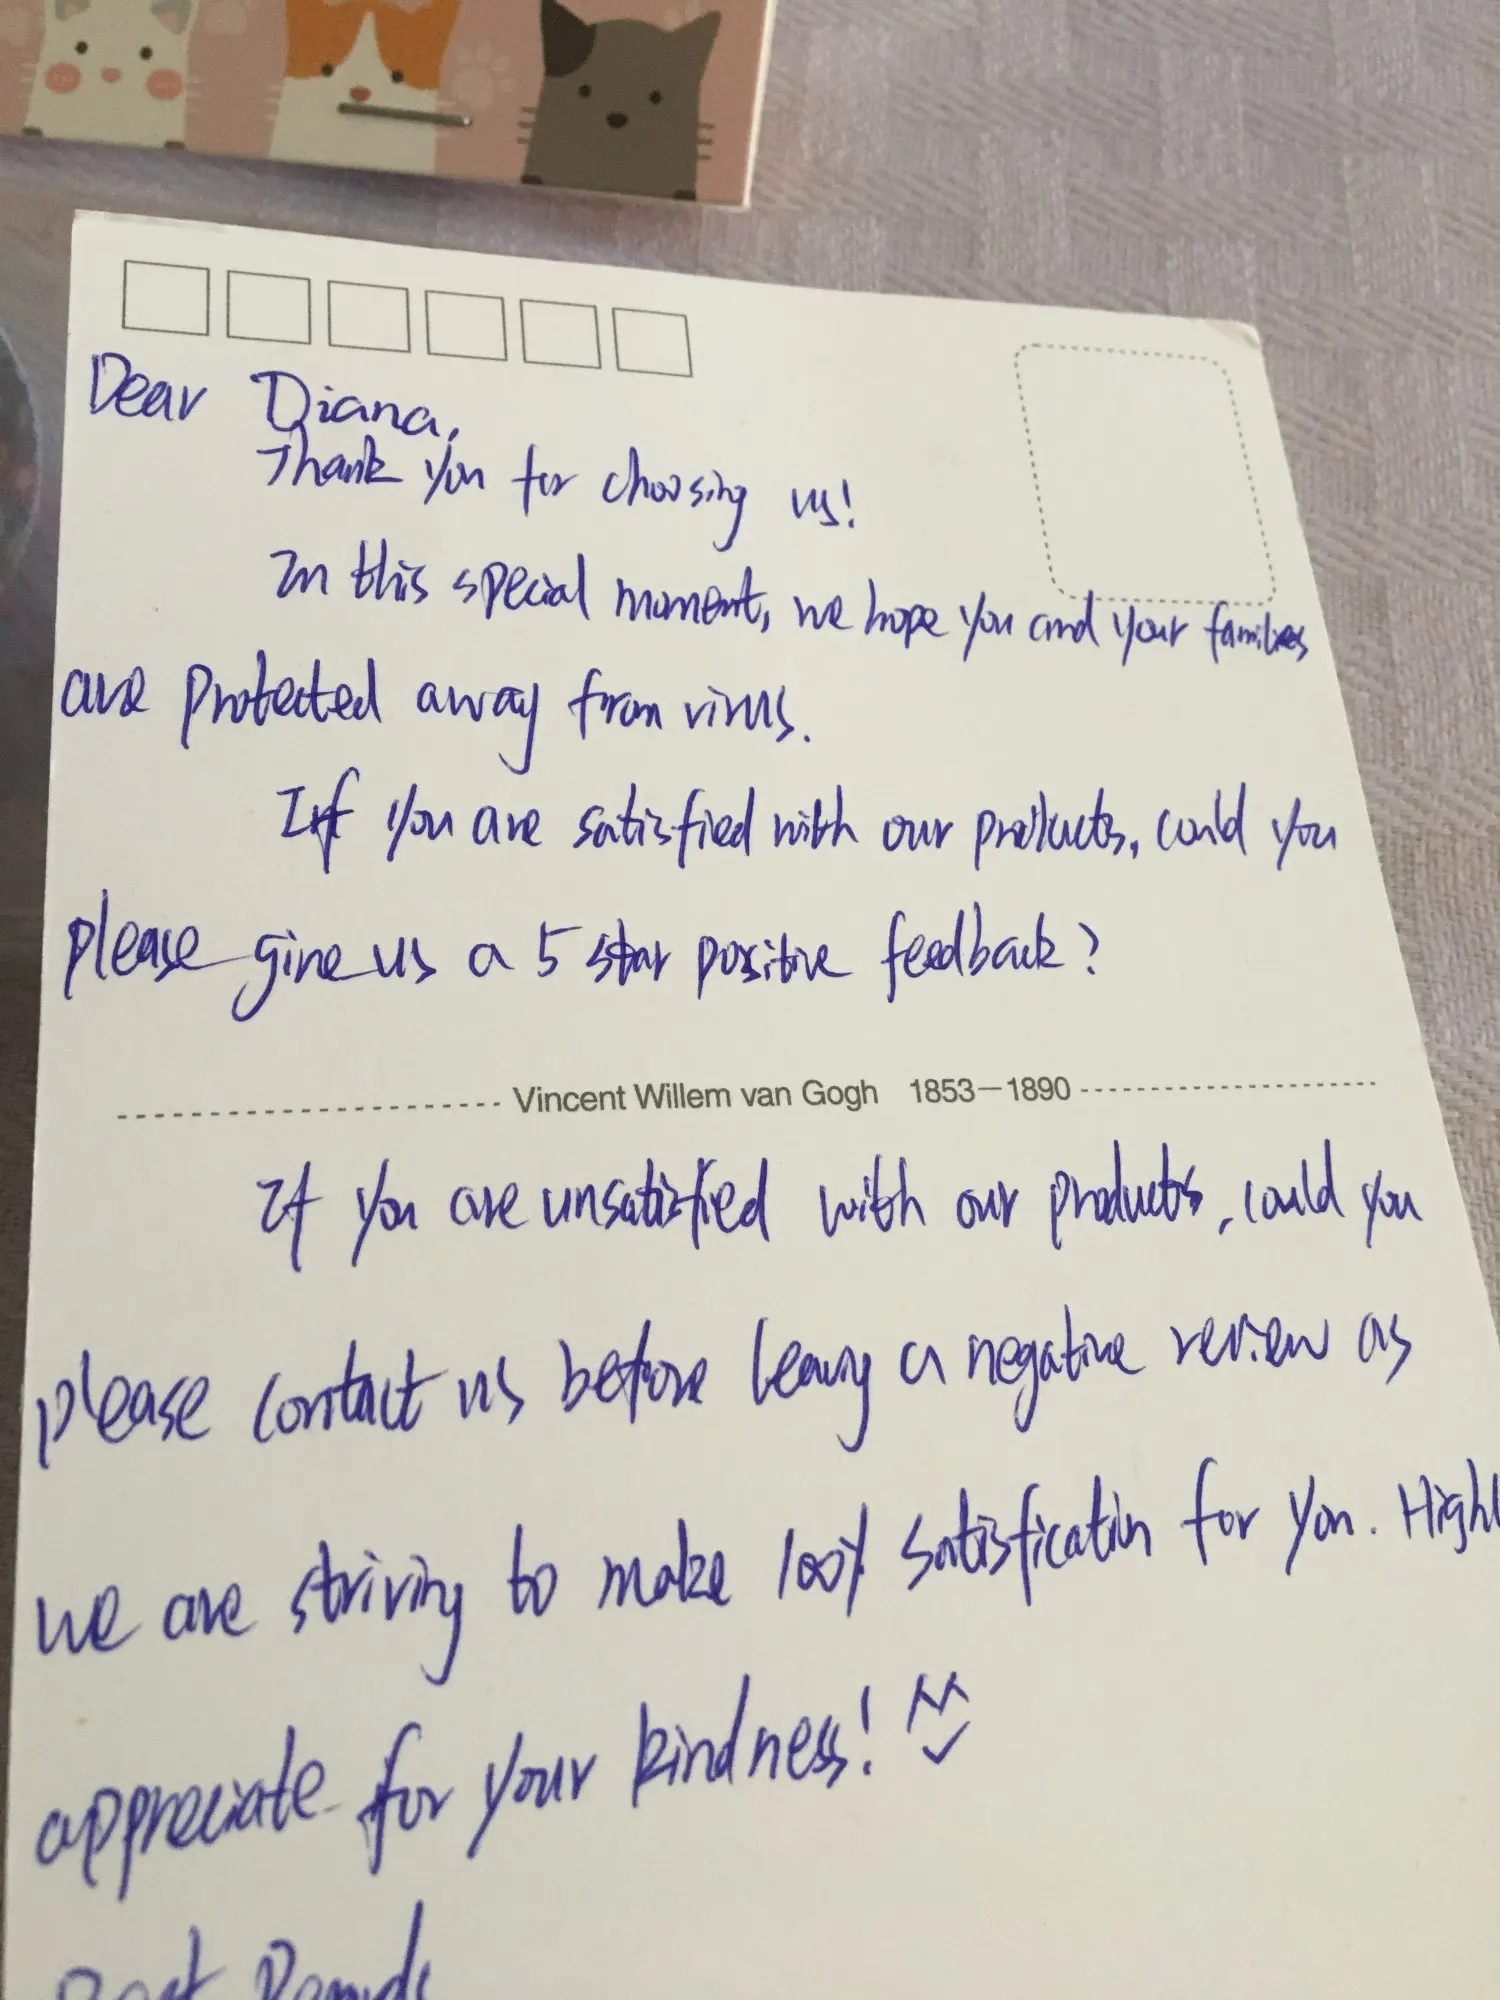 Dear Diana,
Thank you for choosing us!
In this special moment, we hope you and your families
are protected away from virus.
If you are satisfied with our products, could you
please give us a 5 star positive feedback?
Vincent Willem van Gogh 1853—1890
If you are unsatisfied with our products, could you
please contact us before leaving a negative review as
we are striving to make 100% satisfication for you. Highl
appreciate for your kindness!
Best Regards